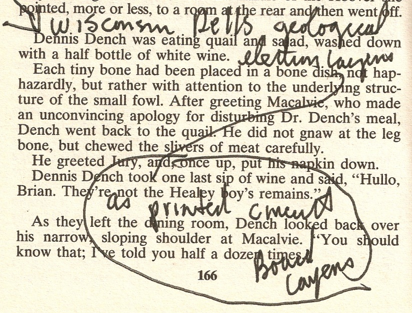 pointed, more or less, to a room at the rear and then went off.
Wisconsin Dells geological
Dennis Dench was eating quail and salad, washed down
with a half bottle of white wine.
election layers
Each tiny bone had been placed in a bone dish, not hap-
hazardly, but rather with attention to the underlying struc-
ture of the small fowl. After greeting Macalvie, who made
an unconvincing apology for disturbing Dr. Dench's meal,
Dench went back to the quail. He did not gnaw at the leg
bone, but chewed the slivers of meat carefully.
He greeted Jury, and once up, put his napkin down.
Dennis Dench took one last sip of wine and said, "Hullo,
Brian. They're not the Healey boy's remains."
as printed circuit
As they left the dining room, Dench looked back over
his narrow, sloping shoulder at Macalvie. "You should
know that; I've told you half a dozen times
Board
layers
166